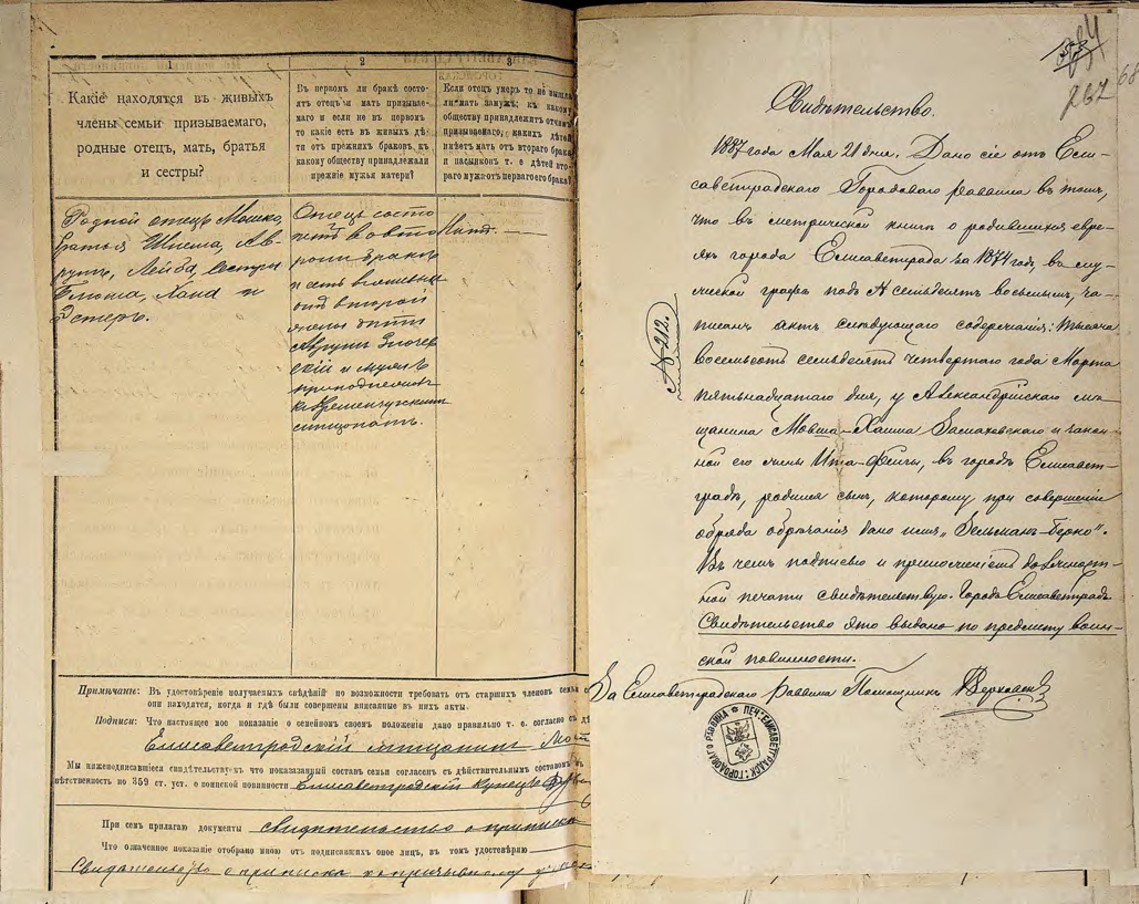 1
2
3
Какіе находятся въ живыхъ
члены семьи призываемаго,
родные отецъ, мать, братья
и сестры?
Въ первомъ ли бракѣ состо-
ятъ отецъ и мать призывае-
маго и если не въ первомъ
то какіе есть въ живыхъ дѣ-
ти отъ прежнихъ браковъ къ
какому обществу принадлежали
прежніе мужья матери?
Если отецъ умеръ то не вышла
ли мать замужъ; къ какому
обществу принадлежитъ отчимъ
призываемаго, какихъ дѣтей
имѣетъ мать отъ втораго брака
и пасынковъ т. е. дѣтей вто-
раго мужа отъ перваго его брака?
Родной отецъ Мошко,
братья Шлема, Ав-
румъ, Лейба, сестры
Хана и
Эстеръ.
Отецъ состо
итъ во вто
ромъ бракѣ
и есть
отъ второй
жены дѣти
Аврумъ
Примѣчаніе: Въ удостовѣреніе получаемыхъ свѣдѣній по возможности требовать отъ старшихъ членовъ семьи
они находятся, когда и гдѣ были совершены вписанные въ нихъ акты.
Подписи: Что настоящее мое показаніе о семейномъ своемъ положеніи дано правильно т. е. согласно съ
Елисаветградскій мѣщанинъ
Мы нижеподписавшіеся свидѣтельствуемъ что показанный составъ семьи согласенъ съ дѣйствительнымъ составомъ
вѣтственность по 359 ст. уст. о воинской повинности Елисаветградскій купецъ
При семъ прилагаю документы свидѣтельство о припискѣ
Что означенное показаніе отобрано мною отъ подписавшихъ оное лицъ, въ томъ удостовѣряю
Свидѣтельство о припискѣ къ призывному
267
68
Свидѣтельство.
1887 года Мая 21 дня. Дано сіе отъ Ели-
саветградскаго Городоваго Раввина въ томъ,
что въ метрической книгѣ о родившихся евре-
яхъ города Елисаветграда за 1874 годъ, въ му-
жеской графѣ подъ № семьдесятъ восьмымъ, за-
писанъ актъ слѣдующаго содержанія: Тысяча
восемьсотъ семьдесятъ четвертаго года Марта
пятьнадцатаго дня, у Александрійскаго мѣ-
щанина Мовша-Хаима Замаховскаго и закон-
ной его жены Ита-Фейги, въ городѣ Елисавет-
градѣ, родился сынъ, которому при совершеніи
обряда обрѣзанія дано имя „Зельманъ-Берко".
Въ чемъ подписью и приложеніемъ должност-
ной печати свидѣтельствую. Городъ Елисаветградъ
Свидѣтельство это выдано по предмету воин-
ской повинности.
№ 212.
За Елисаветградскаго Раввина Помощникъ
ПЕЧ. ЕЛИСАВЕТГРАДСК. ГОРОДОВАГО РАВВИНА